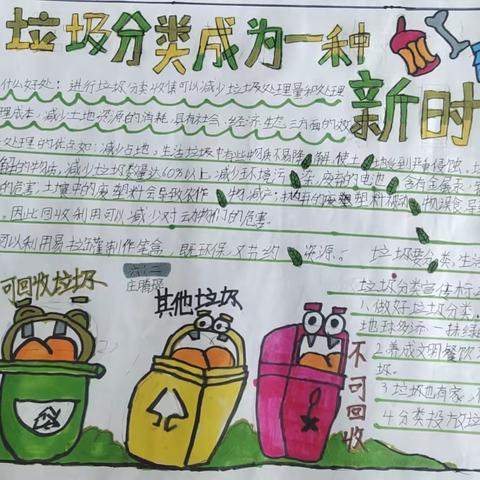 垃圾分类成为一种
新时
什么好处：进行垃圾分类收集可以减少垃圾处理量和处理
理成本，减少土地资源的消耗，具有社会、经济、生态三方面的效
处理的优点如：减少占地，生活垃圾中有些物质不易降解，使土地受到严重侵蚀，垃
解的物质，减少垃圾数量达60%以上，减少环境污染，废弃的电池含有金属汞，
的危害，土壤中的废塑料会导致农作物减产；抛弃的废塑料被动物误食导
，因此回收利用可以减少对动物们的危害。
可以利用易拉罐制作笔盒，既环保，又节约资源。
垃圾要分类，生活
可回收垃圾
其他垃圾
不可回收
垃圾分类宣传标
1.做好垃圾分类，
地球多添一抹绿
2.养成文明餐饮
圾。
3.垃圾也有家，
4.分类投放垃